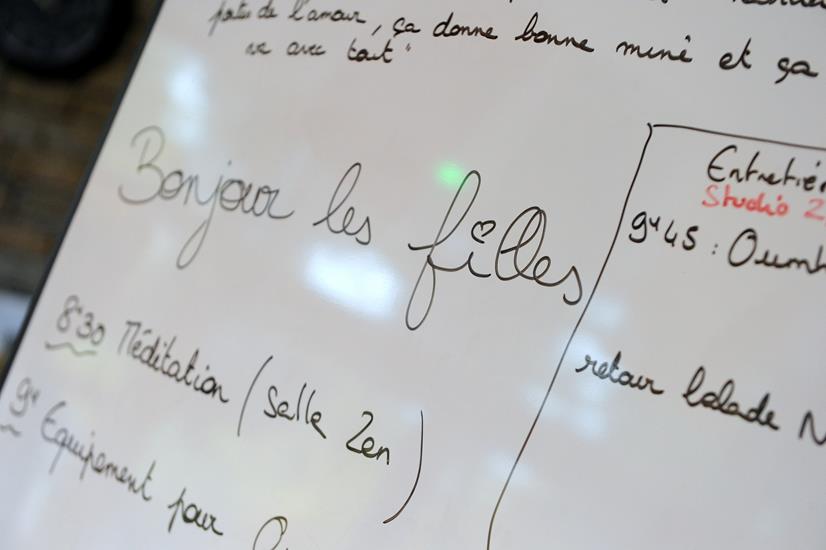 portes de l'amour, ça donne bonne mine et ça
va avec tout"
Bonjour les filles
8h30 Méditation (Salle Zen)
9h Equipement pour
Entretien
Studio 2
9h45 : Oumh
retour balade